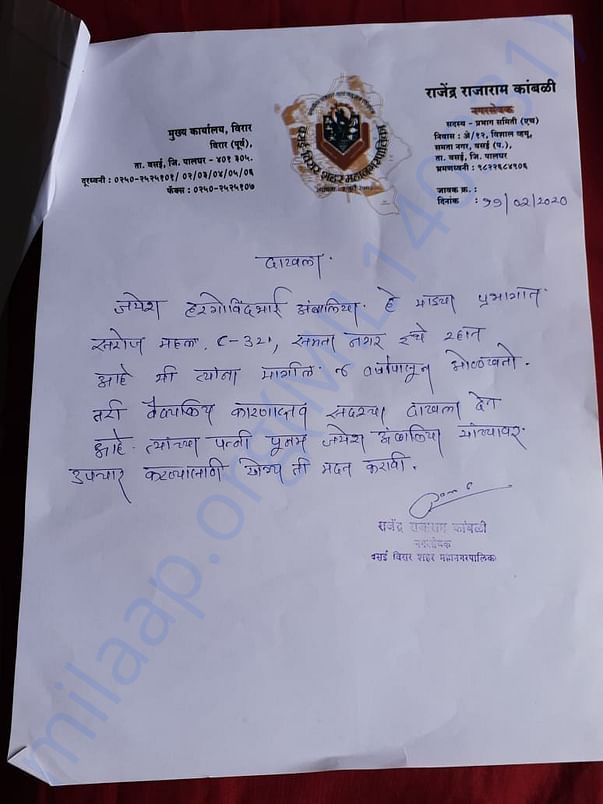 राजेंद्र राजाराम कांबळी
नगरसेवक
सदस्य - प्रभाग समिती (एच)
निवास : जे/१२, विशाल व्हयु,
समता नगर, वसई (प.),
ता. वसई, जि. पालघर
भ्रमणध्वनी : ९८२२६८४९०६
जावक क्र. :
दिनांक : ११/०२/२०२०
मुख्य कार्यालय, विरार
विरार (पूर्व),
ता. वसई, जि. पालघर - ४०१ ३०५.
दूरध्वनी : ०२५०-२५२५१०१/ ०२/०३/०४/०५/०६
फॅक्स : ०२५०-२५२५१०७
वसई विरार शहर महानगरपालिका
दाखला.
जयेश हरगोविंदभाई अंबालिया. हे माझ्या प्रभागात
सरोज महल, C-321, समता नगर इथे रहात
आहे मी त्यांना मागील वर्षापासून ओळखतो.
तरी वैद्यकिय कारणास्तव सदरचा दाखला देत
आहे. त्यांच्या पत्नी पूनम जयेश अंबालिया यांच्यावर
उपचार करण्यासाठी योग्य ती मदत करावी.
राजेंद्र राजाराम कांबळी
नगरसेवक
वसई विरार शहर महानगरपालिका
milaap.org